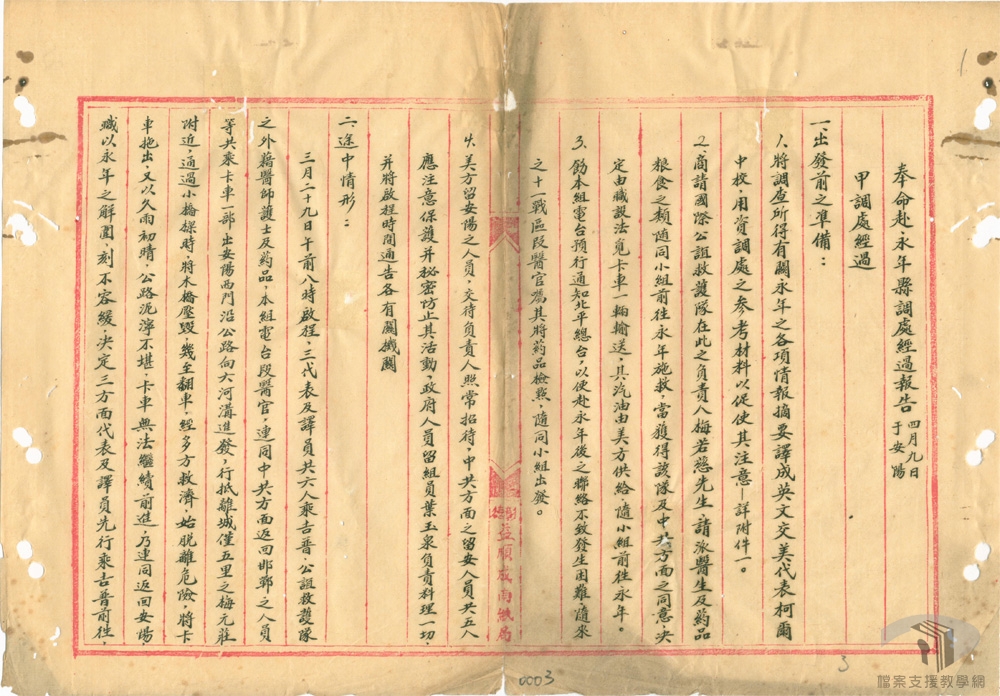 奉命赴永年縣調處經過報告 四月九日
于安陽
甲 調處經過
一、出發前之準備：
1. 將調查所得有關永年之各項情報摘要譯成英文交美代表柯爾
中校，用資調處之參考材料以促使其注意—詳附件一。
2. 商請國際公誼救護隊在此之負責人梅若慈先生，請派醫生及葯品
粮食之類隨同小組前往永年施救，當獲得該隊及中共方面之同意，決
定由職設法覓卡車一輛輸送，其汽油由美方供給，隨小組前往永年。
3. 飭本組電台預行通知北平總台，以便赴永年後之聯絡不致發生困難，隨來
之十一戰區段醫官薦其將葯品檢點，隨同小組出發。
4. 美方留安陽之人員，交待負責人照常招待，中共方面之留安人員共五人
應注意保護并秘密防止其活動，政府人員留組員葉玉泉負責料理一切，
并將啟程時間通告各有關機關
二、途中情形：
三月二十九日午前八時啟程，三代表及譯員共六人乘吉普，公誼救護隊
之外籍醫師護士及葯品，本組電台段醫官，連同中共方面返回邯鄲之人員
等共乘卡車一部出安陽西門沿公路向大河溝進發，行抵離城僅五里之梅元莊
附近，通過小橋樑時，將木橋壓毀，幾至翻車，經多方救濟，始脫離危險，將卡
車拖出，又以久雨初晴，公路泥濘不堪，卡車無法繼續前進，乃連同返回安陽，
職以永年之解圍，刻不容緩，決定三方面代表及譯員先行乘吉普前往，
益順成南紙局
0003
3
1
檔案支援教學網